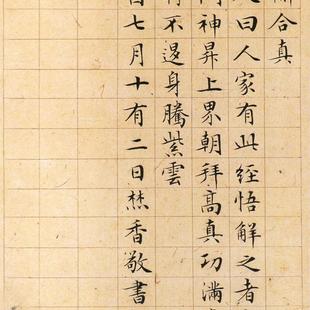 合真
曰人家有此經悟解之者
神昇上界朝拜高真功滿
不退身騰紫雲
七月十有二日焚香敬書